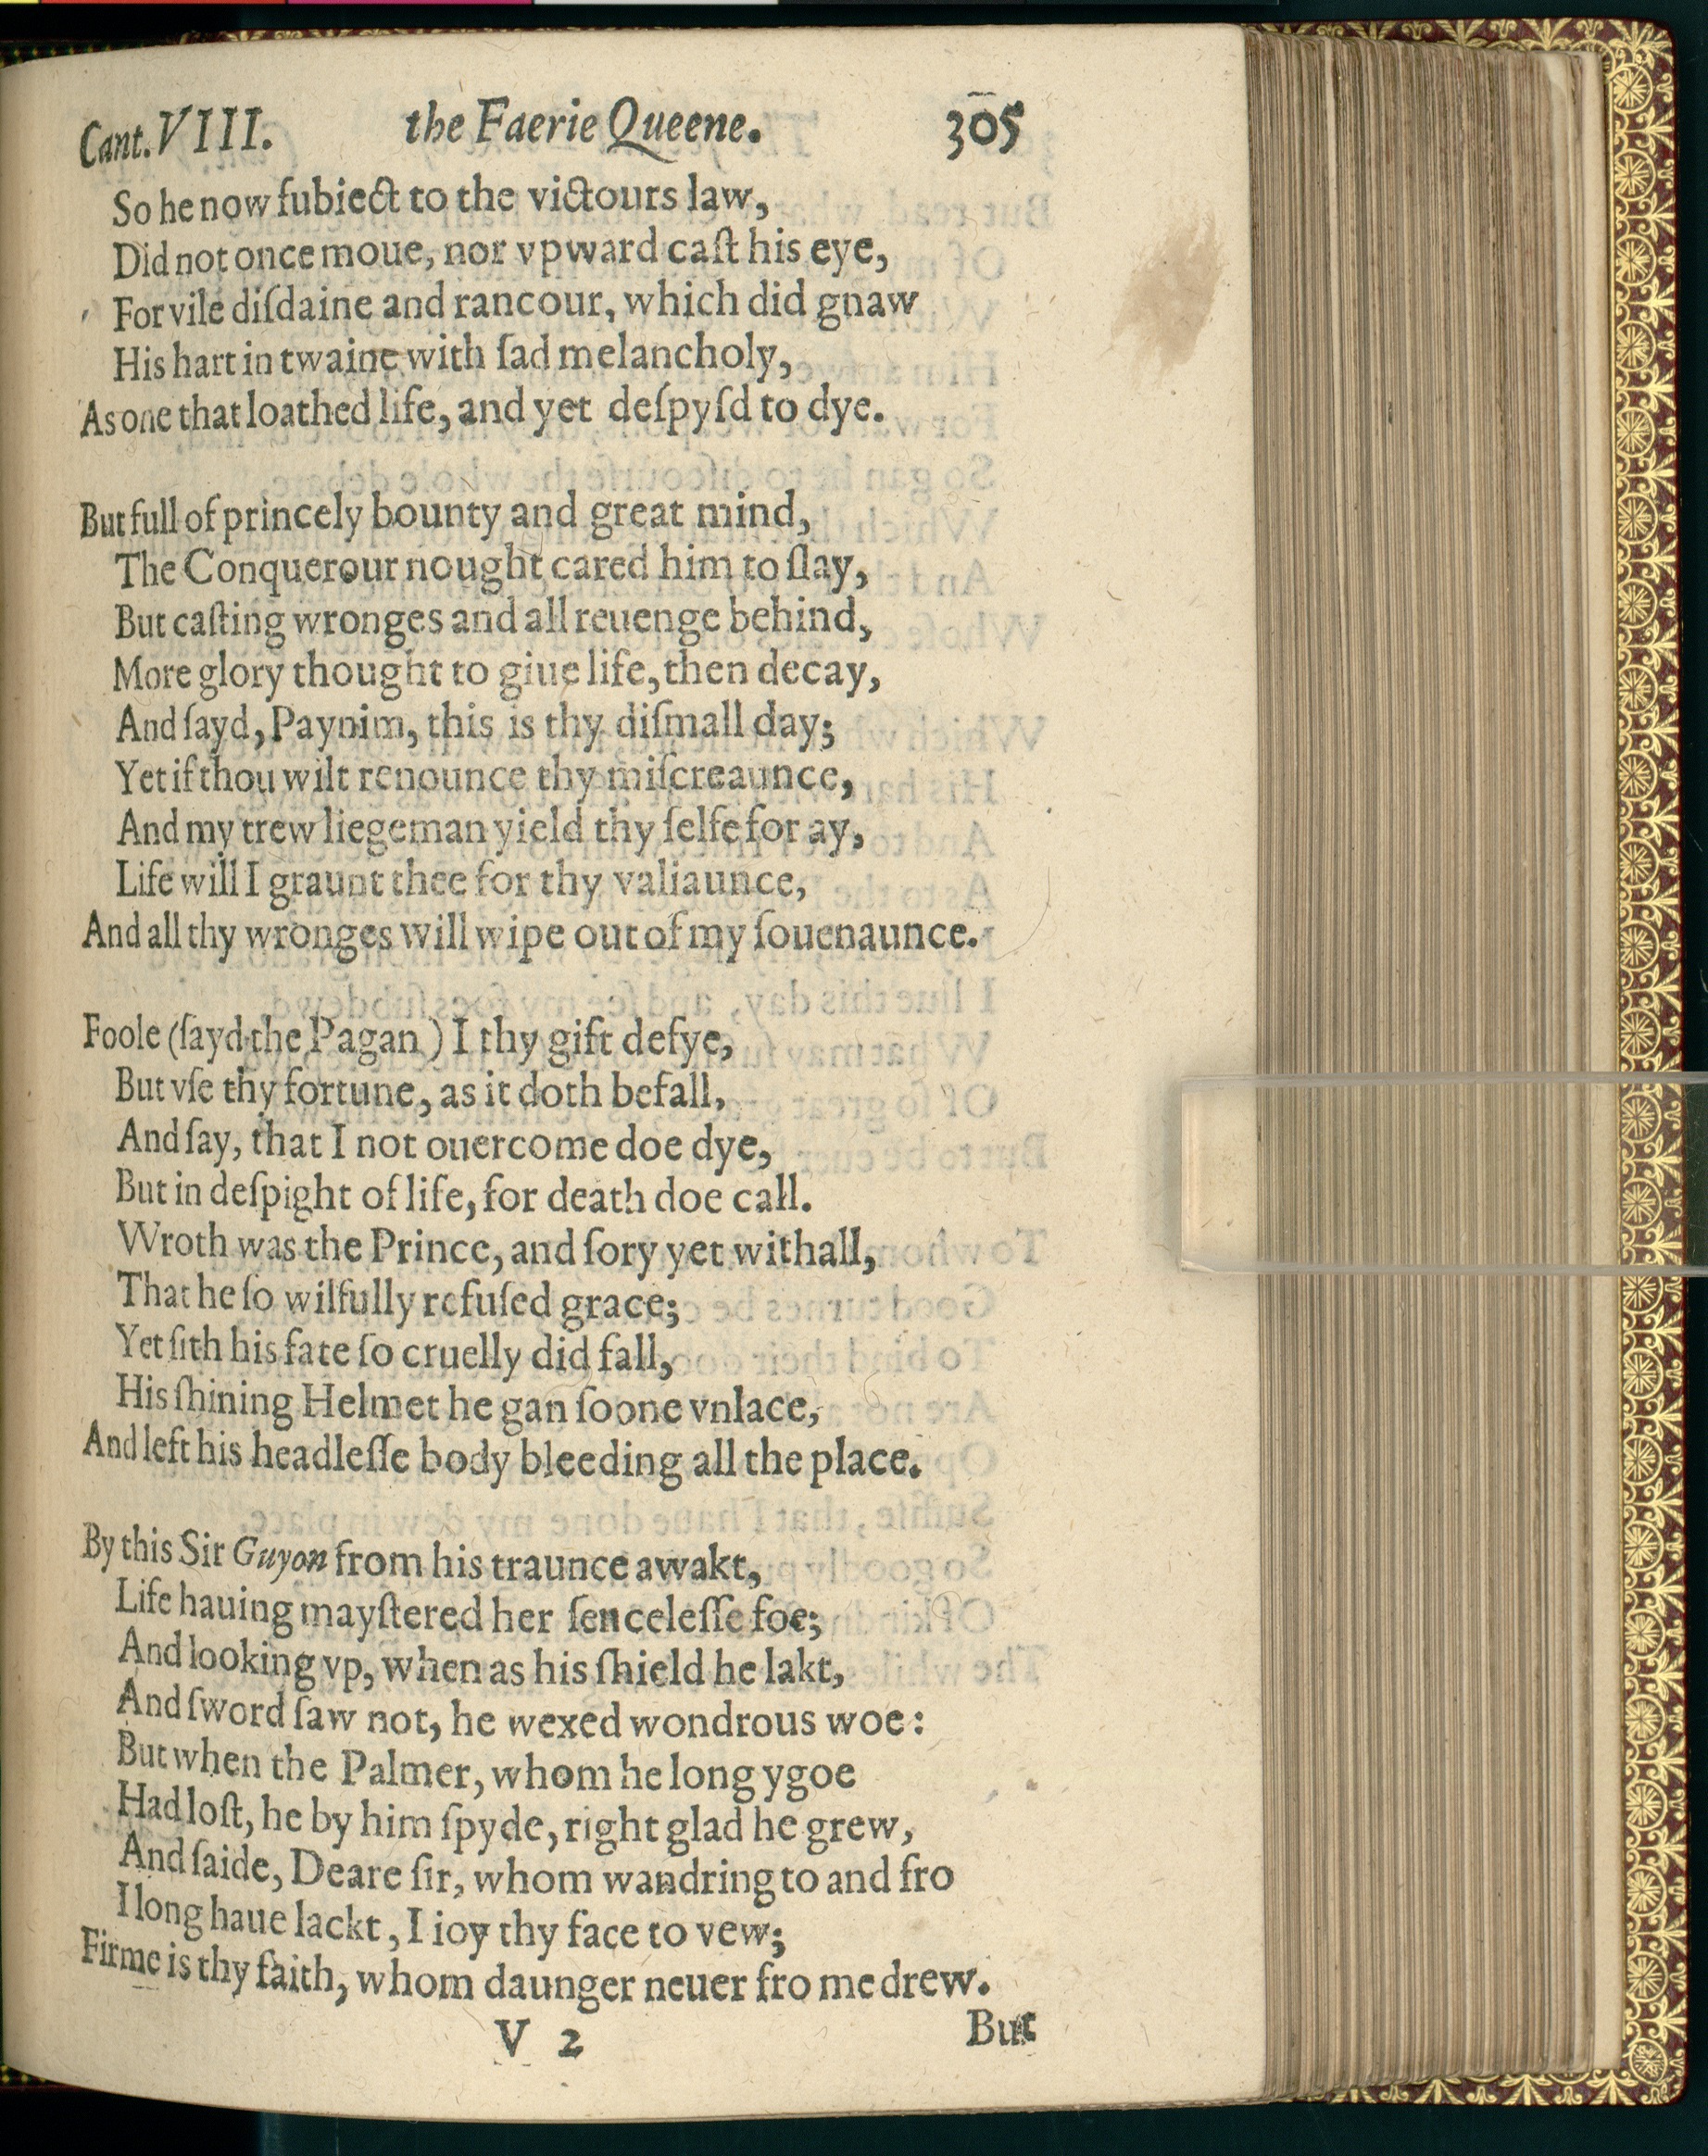 Cant. VIII. the Faerie Queene. 305
So he now ſubiect to the victours law,
Did not once moue, nor vpward caſt his eye,
For vile diſdaine and rancour, which did gnaw
His hart in twaine with ſad melancholy,
As one that loathed life, and yet deſpyſd to dye.
But full of princely bounty and great mind,
The Conquerour nought cared him to ſlay,
But caſting wronges and all reuenge behind,
More glory thought to giue life, then decay,
And ſayd, Paynim, this is thy diſmall day;
Yet if thou wilt renounce thy miſcreaunce,
And my trew liegeman yield thy ſelfe for ay,
Life will I graunt thee for thy valiaunce,
And all thy wronges will wipe out of my ſouenaunce.
Foole (ſayd the Pagan) I thy gift defye,
But vſe thy fortune, as it doth befall,
And ſay, that I not ouercome doe dye,
But in deſpight of life, for death doe call.
Wroth was the Prince, and ſory yet withall,
That he ſo wilfully refuſed grace;
Yet ſith his fate ſo cruelly did fall,
His ſhining Helmet he gan ſoone vnlace,
And left his headleſſe body bleeding all the place.
By this Sir Guyon from his traunce awakt,
Life hauing mayſtered her ſenceleſſe foe;
And looking vp, when as his ſhield he lakt,
And ſword ſaw not, he wexed wondrous woe:
But when the Palmer, whom he long ygoe
Had loſt, he by him ſpyde, right glad he grew,
And ſaide, Deare ſir, whom wandring to and fro
I long haue lackt, I ioy thy face to vew;
Firme is thy faith, whom daunger neuer fro me drew.
V 2 But